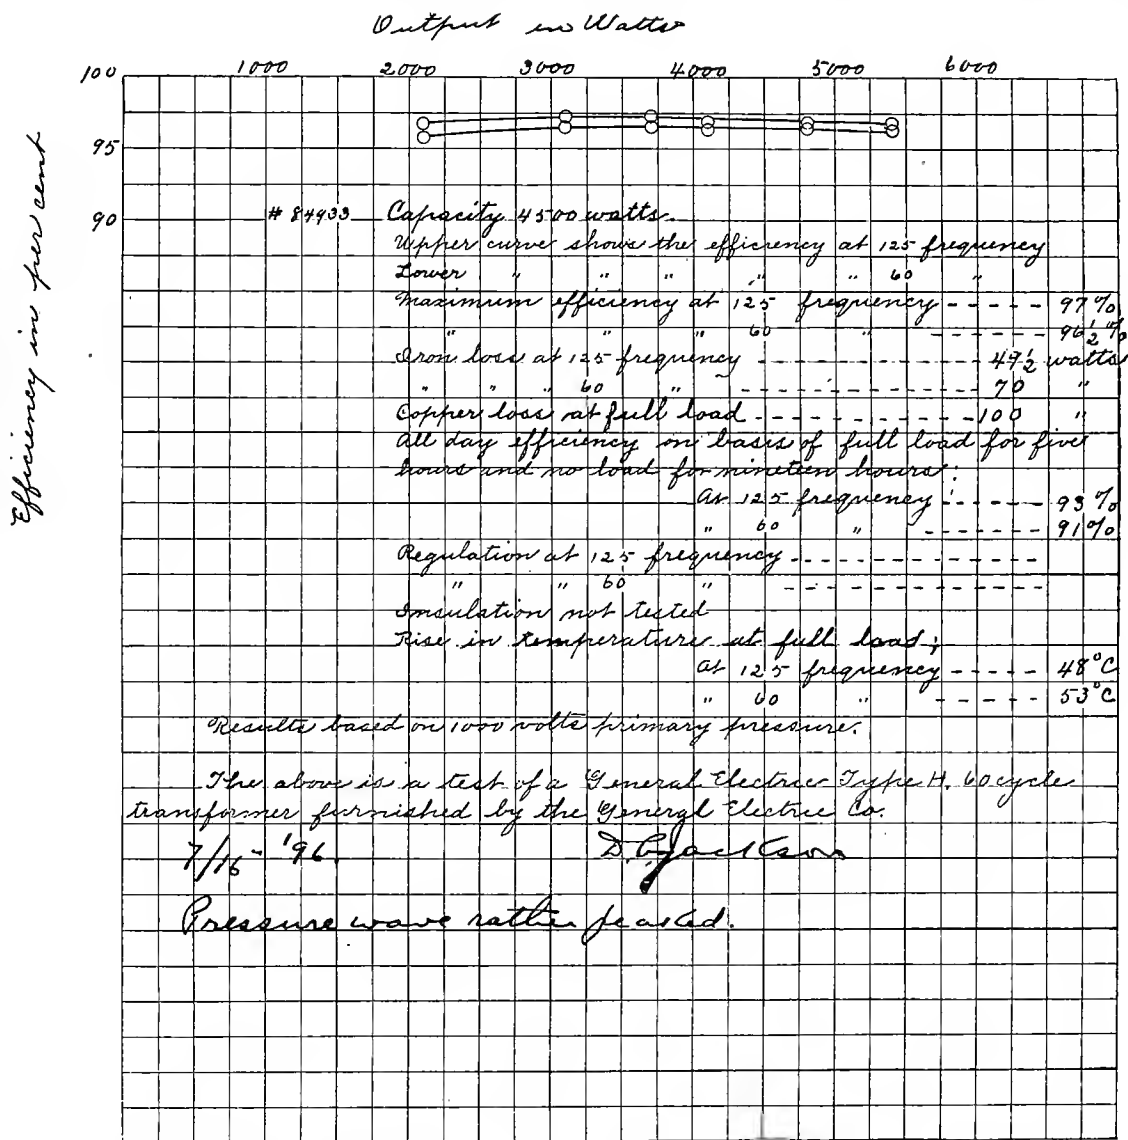 Output in Watts
1000 2000 3000 4000 5000 6000
100
95
90
Efficiency in per cent
# 84933 Capacity 4500 watts.
Upper curve shows the efficiency at 125 frequency
Lower " " " " " 60 "
Maximum efficiency at 125 frequency - - - - - 97%
" " " 60 " - - - - - - 96 1/2 %
Iron loss at 125 frequency - - - - - - - - - - 49 1/2 watts
" " " 60 " - - - - - - - - - - 70 "
Copper loss at full load - - - - - - - - - 100 "
All day efficiency on basis of full load for five
hours and no load for nineteen hours:
At 125 frequency - - - - - - 93%
" 60 " - - - - - - 91%
Regulation at 125 frequency - - - - - - - - - - - -
" " 60 " - - - - - - - - - - - -
Insulation not tested
Rise in temperature at full load;
At 125 frequency - - - - - 48°C
" 60 " - - - - - 53°C
Results based on 1000 volts primary pressure.
The above is a test of a General Electric Type H. 60 cycle
transformer furnished by the General Electric Co.
7/16 - '96. D. C. Jackson
Pressure wave rather peaked.